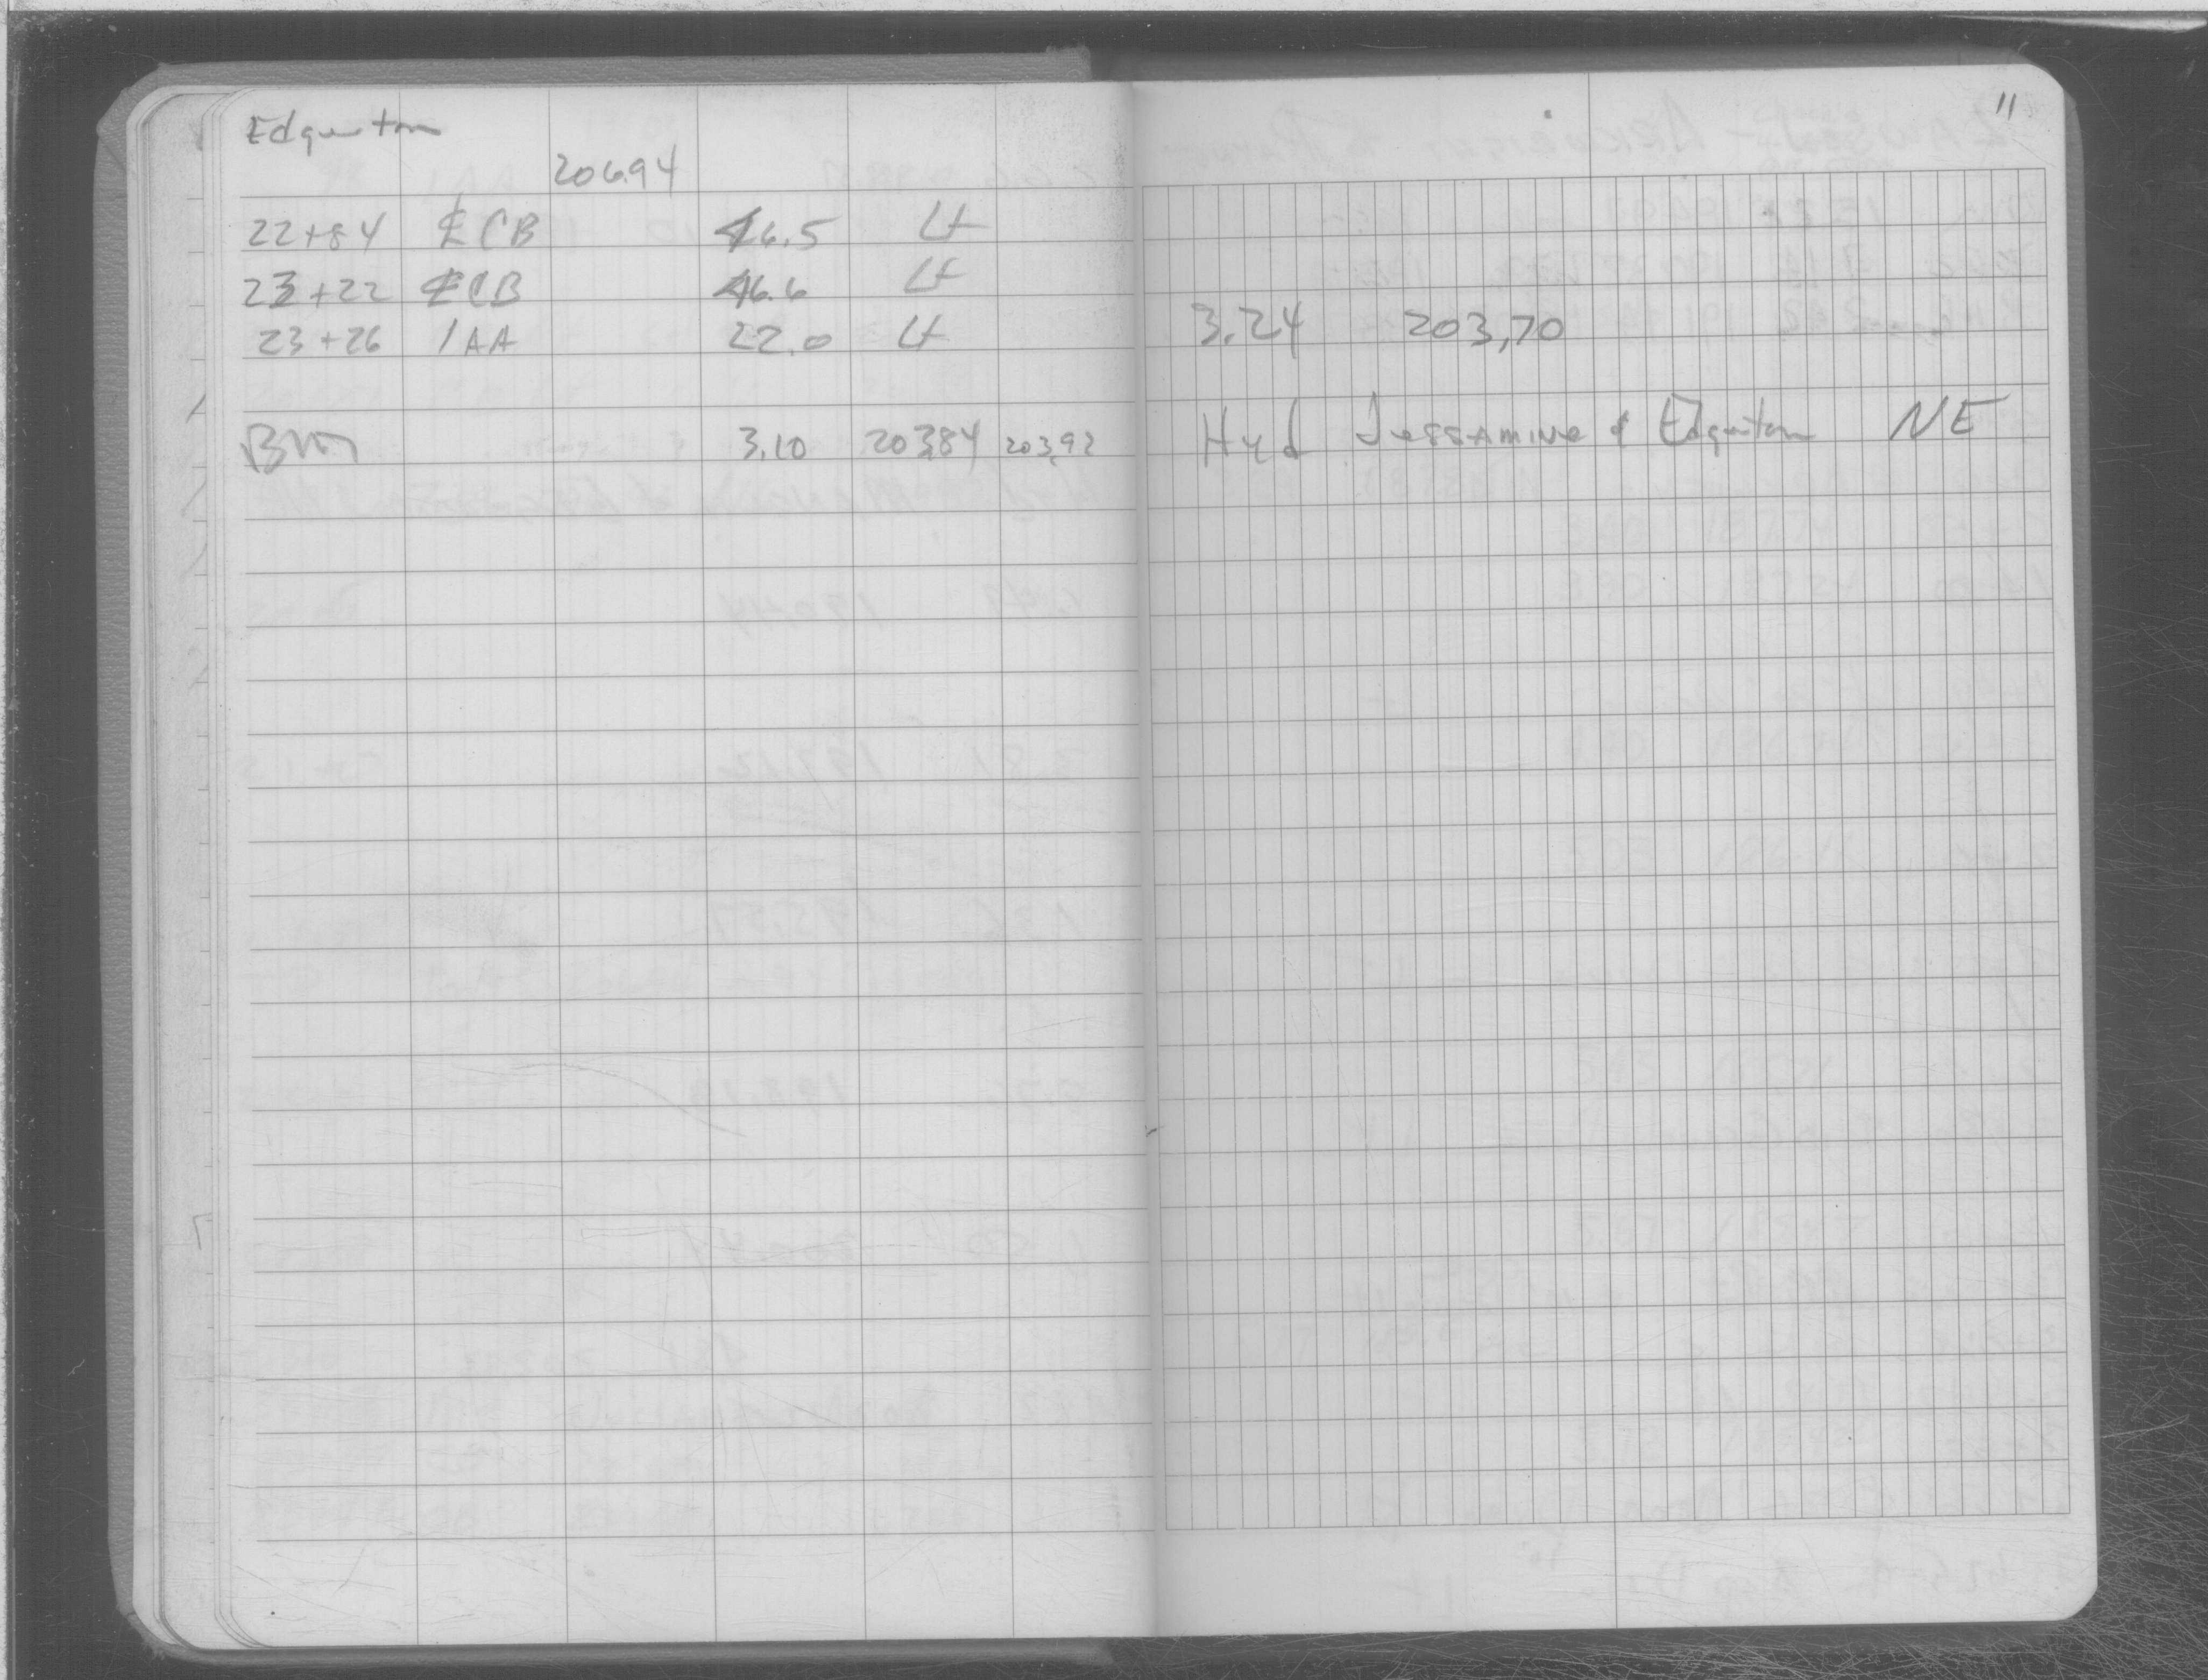 11
Edgerton
206.94
22+84 ℄ CB 16.5 Lt
23+22 ℄ CB 16.6 Lt
23+26 1AA 22.0 Lt 3.24 203.70
BM 3.10 203.84 203.92 Hyd Jessamine & Edgerton NE